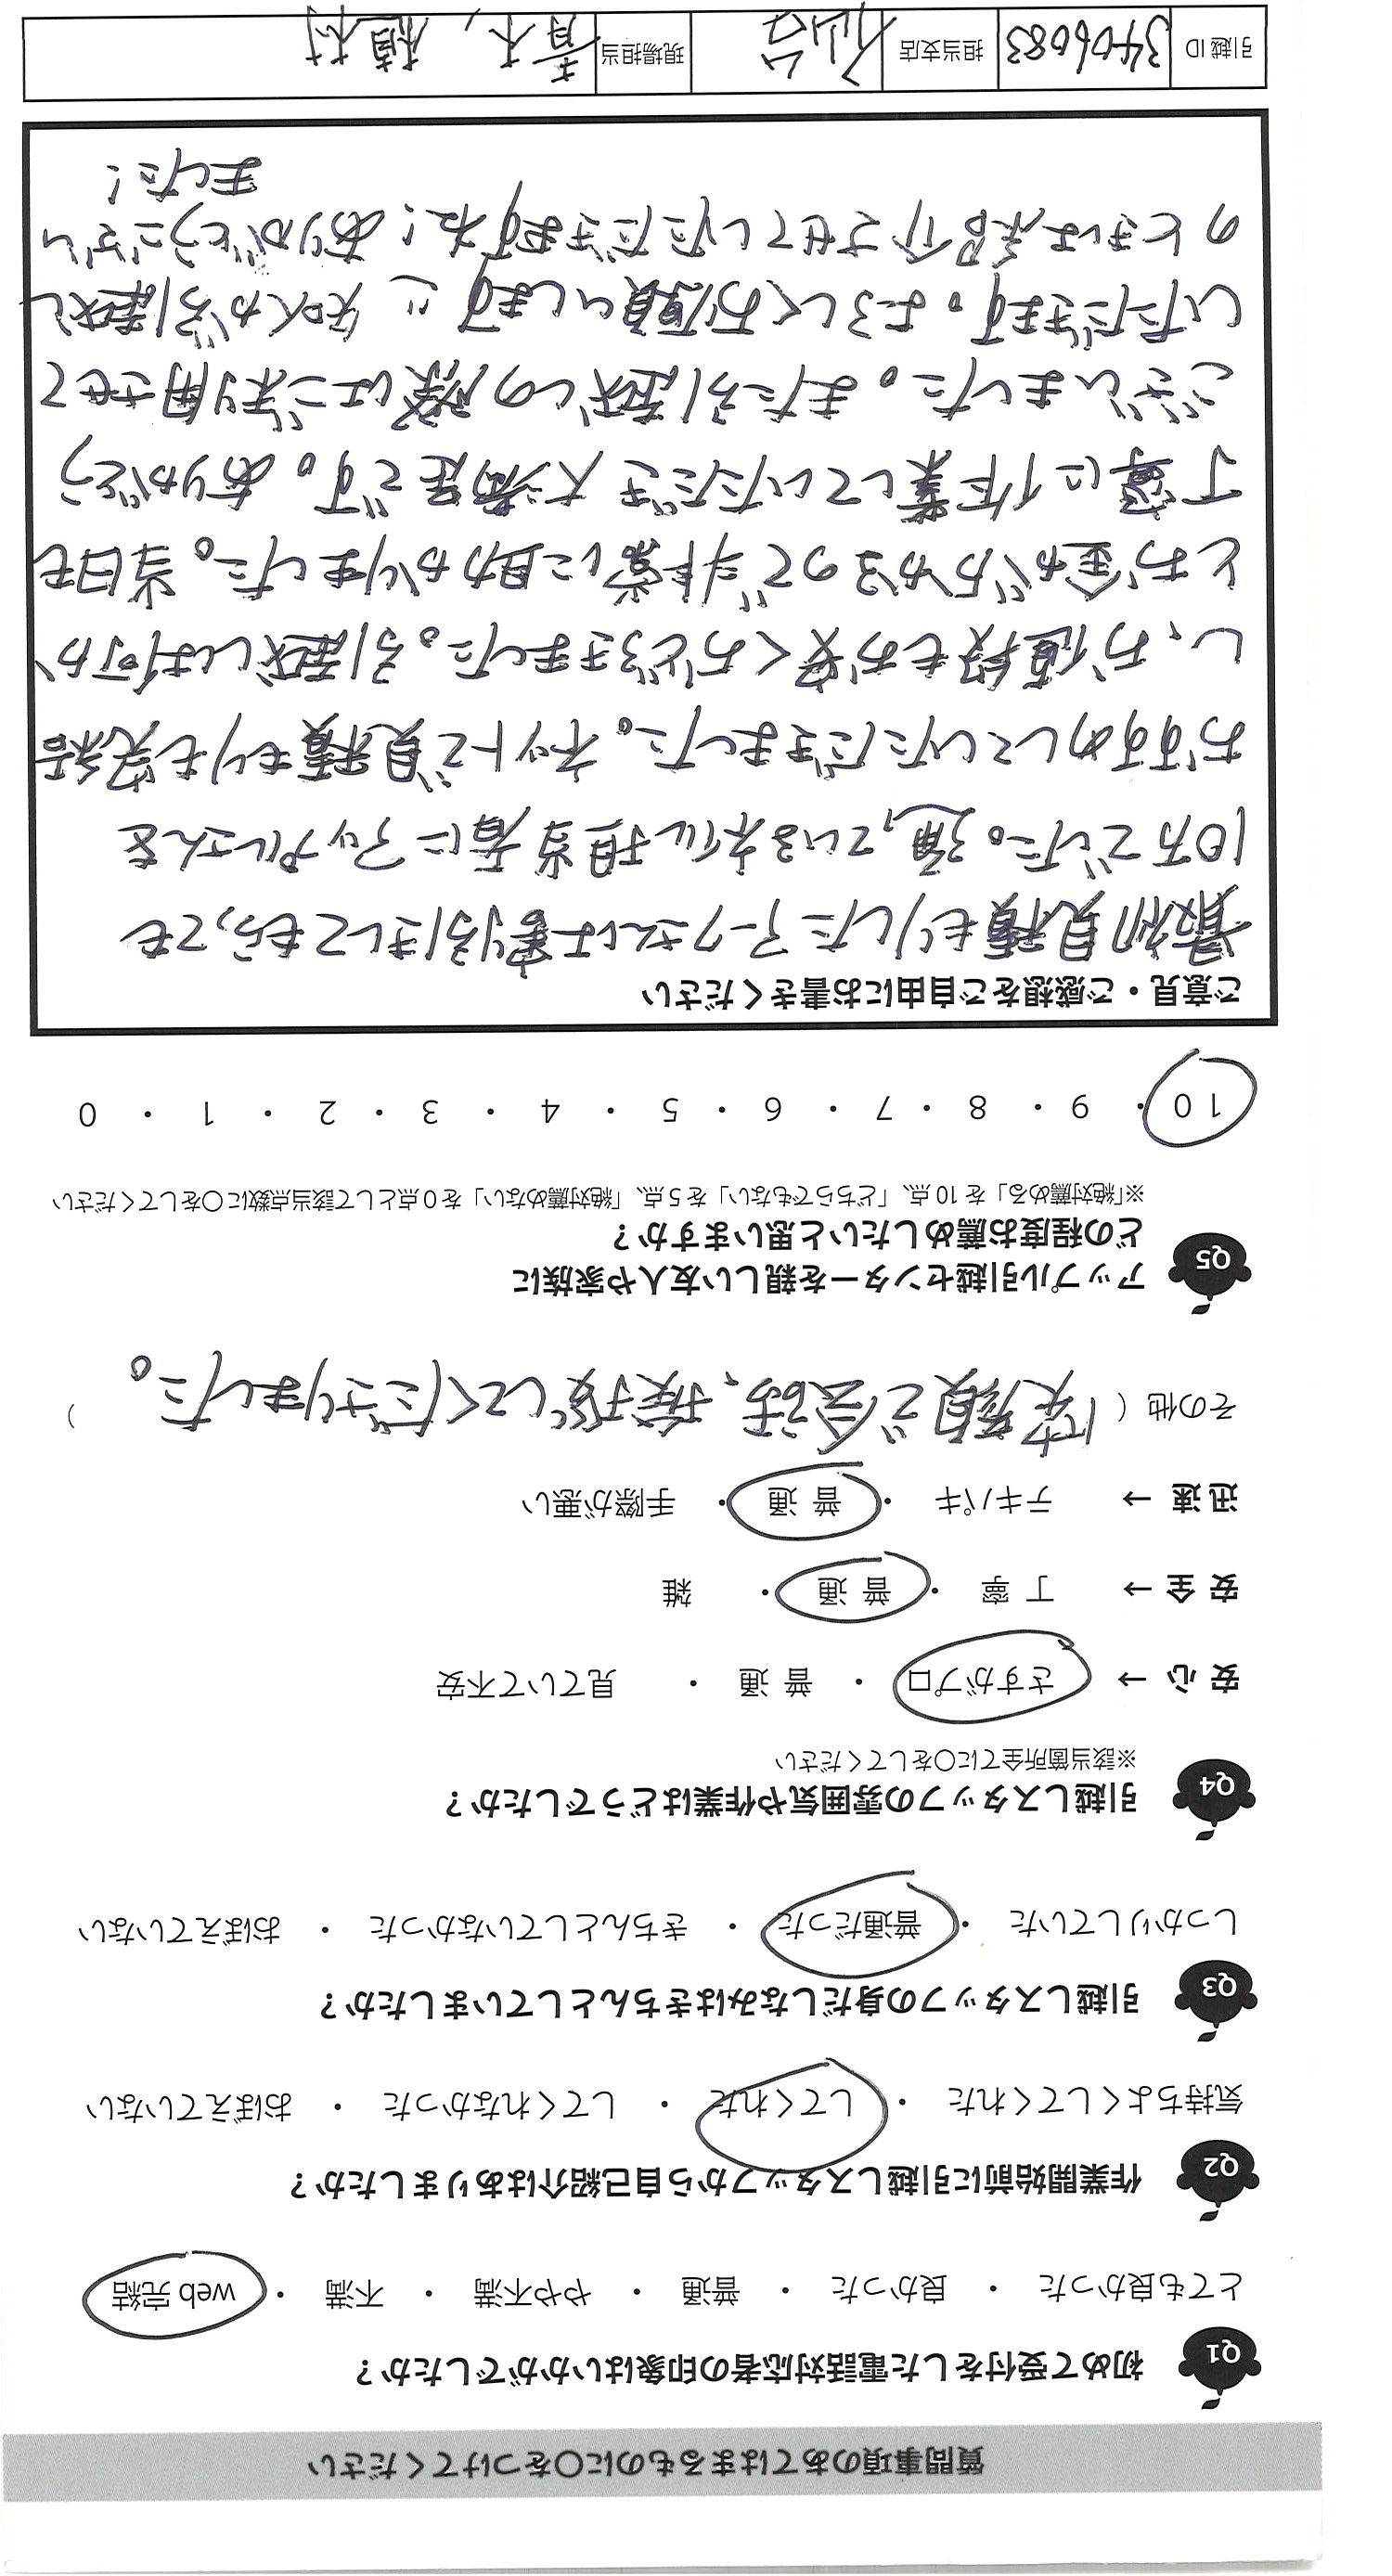 質問事項のあてはまるものに○をつけてください
Q1 初めて受付をした電話対応者の印象はいかがでしたか？
とても良かった ・ 良かった ・ 普通 ・ やや不満 ・ 不満 ・ web 完結
Q2 作業開始前に引越しスタッフから自己紹介はありましたか？
気持ちよくしてくれた ・ してくれた ・ してくれなかった ・ おぼえていない
Q3 引越しスタッフの身だしなみはきちんとしていましたか？
しっかりしていた ・ 普通だった ・ きちんとしていなかった ・ おぼえていない
Q4 引越しスタッフの雰囲気や作業はどうでしたか？
※該当箇所全てに○をしてください
安 心 → さすがプロ ・ 普 通 ・ 見ていて不安
安 全 → 丁 寧 ・ 普 通 ・ 雑
迅 速 → テキパキ ・ 普 通 ・ 手際が悪い
その他（ 笑顔で会話、挨拶してくださりました。 ）
Q5 アップル引越センターを親しい友人や家族に
どの程度お薦めしたいと思いますか？
※「絶対薦める」を 10 点、「どちらでもない」を 5 点、「絶対薦めない」を 0 点として該当点数に○をしてください
10 ・ 9 ・ 8 ・ 7 ・ 6 ・ 5 ・ 4 ・ 3 ・ 2 ・ 1 ・ 0
ご意見・ご感想をご自由にお書きください
最初見積もりしたアークさんは割り引きしてもらっても
10万でした。通っているネイル担当者にアップルさんを
おすすめしていただきました。ネットで見積もりも完結
し、お値段もお安くおどろきました。引越しは何か
とお金がかかるので非常に助かりました。当日も
丁寧に作業していただき大満足です。ありがとう
ございました。また引越しの際はご利用させて
いただきます。よろしくお願いします 知人が引越し
のときは紹介させていただきますね！ありがとうござい
ました！
引越 ID 3406083 担当支店 仙台 現場担当 青木, 植村